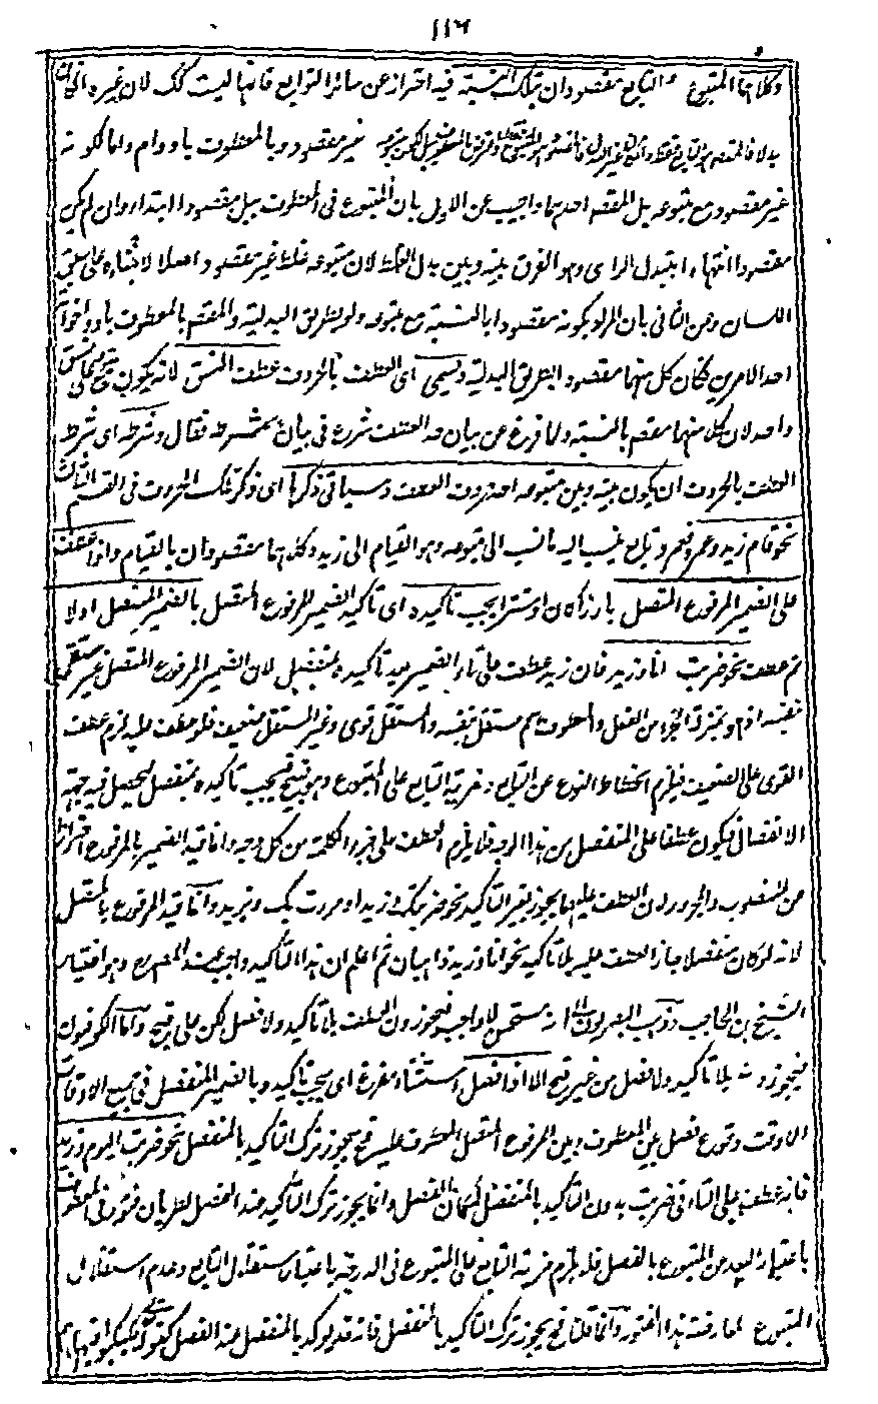 ١١٦
وكلاهما المتبوع والتابع مقصودان بتلك النسبة فيه احتراز عن سائر التوابع فانها ليست كك لان غير
بدلا فالمقصود هو التابع فقط غير مقصود وبالمعطوف باو وام واما لكونه
غير مقصود مع متبوعه بل المقصود احدهما واجيب عن الاول بان المتبوع فى المعطوف ببل مقصود ابتداء وان لم يكن
مقصودا انتهاء ابتبدل الراى وهو الفرق بينه وبين بدل الغلط لان متبوعه غلط غير مقصود اصلا لابتنائه على سبق
اللسان وعن الثانى بان المراد بكونه مقصودا بالنسبة مع متبوعه ولو بطريق البدلية والمقصود بالمعطوف باو واخواته
احد الامرين فكان كل منهما مقصودا بطريق البدلية ويسمى اى العطف بالحروف عطف النسق لانه يكون مع متبوعه على نسق
واحد لان كلا منهما مقصود بالنسبة ولما فرغ عن بيان حد العطف شرع فى بيان شرطه فقال وشرطه اى شرط
العطف بالحروف ان يكون بينه وبين متبوعه احد حروف العطف وسياتى ذكرها اى ذكر تلك الحروف فى القسم الثالث
نحو قام زيد وعمرو فعمرو تابع ينسب اليه ما نسب الى متبوعه وهو القيام الى زيد وكلاهما مقصودان بالقيام واذا عطف
على الضمير المرفوع المتصل بارزا كان او مستترا يجب تاكيده اى تاكيد الضمير المرفوع المتصل بالضمير المنفصل اولا
ثم عطف نحو ضربت انا وزيد فان زيد عطف على تاء الضمير بعد تاكيده بمنفصل لان الضمير المرفوع المتصل غير مستقل
بنفسه اذ هو بمنزلة الجزء من الفعل والمعطوف اسم مستقل بنفسه والمستقل قوى وغير المستقل ضعيف فلو عطف عليه لزم عطف
القوى على الضعيف فيلزم انحطاط المتبوع عن التابع ومزية التابع على المتبوع وهو قبيح فيجب تاكيده بمنفصل ليحصل فيه جهة
الانفصال فيكون عطفا على المنفصل من هذا الوجه فلا يلزم العطف على جزء الكلمة من كل وجه وانما قيد الضمير بالمرفوع احترازا
عن المنصوب والمجرور لان العطف عليهما يجوز بغير التاكيد نحو ضربتك وزيدا ومررت بك وبزيد وانما قيد المرفوع بالمتصل
لانه لو كان منفصلا جاز العطف عليه بلا تاكيد نحو انا وزيد ذاهبان ثم اعلم ان هذا التاكيد واجب عند المص رح وهو اختيار
الشيخ بن الحاجب وذهب البصريون الى انه مستحسن لا واجب فيجوزون العطف بلا تاكيد ولا فصل لكن على قبح واما الكوفيون
فيجوزونه بلا تاكيد ولا فصل من غير قبح الا اذا فصل استثناء مفرغ اى يجب تاكيده بالضمير المنفصل فى جميع الاوقات
الا وقت وقوع فصل بين المعطوف وبين المرفوع المتصل المعطوف عليه فح يجوز ترك التاكيد بالمنفصل نحو ضربت اليوم وزيد
فانه عطف على التاء فى ضربت بدون التاكيد بالمنفصل لمكان الفصل وانما يجوز ترك التاكيد عند الفصل لطريان فتور فى المعطوف
باعتبار البعد عن المتبوع بالفصل فلا يلزم مزية التابع على المتبوع فى الدرجة باعتبار استقلال التابع وعدم استقلال
المتبوع لمعارضة هذا الفتور وانما قلنا فح يجوز ترك التاكيد بالمنفصل فانه قد يؤكد بالمنفصل عند الفصل كقوله تعالى فكبكبوا فيها هم